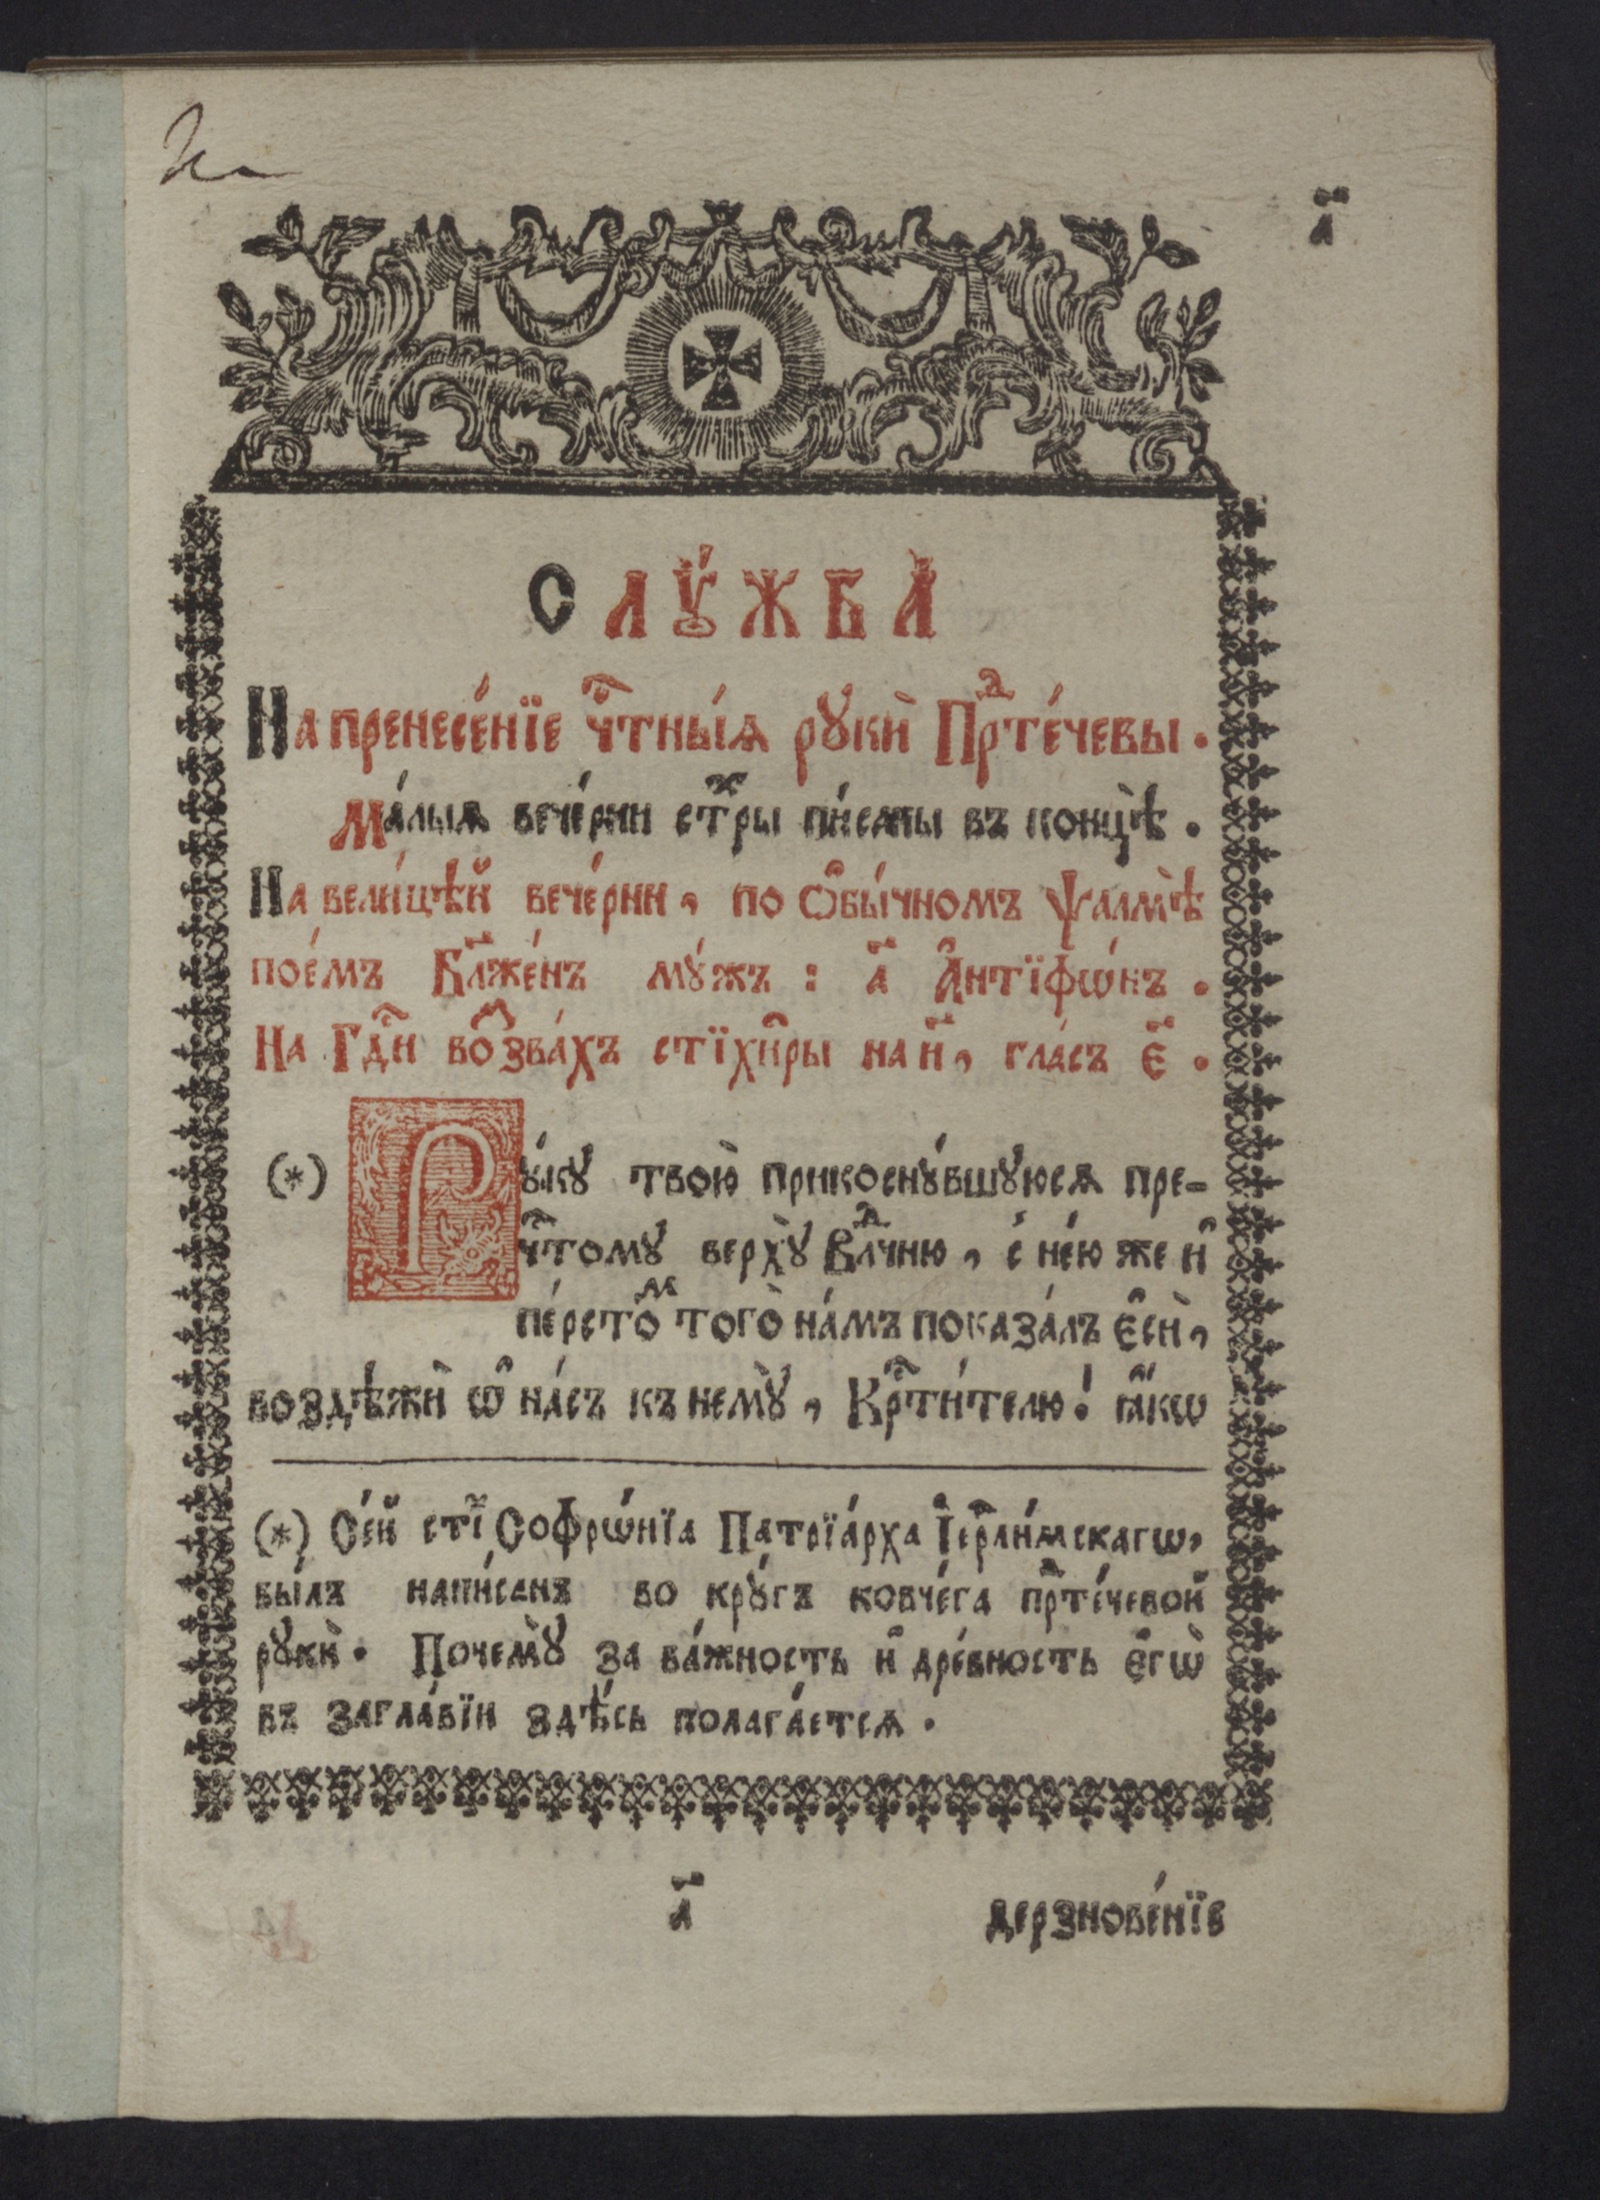 а҃
СЛꙋ́ЖБА̀
На пренесе́нїе чⷭ҇тны́ѧ рꙋкѝ Прⷣте́чевы.
Ма́лыѧ вече́рни стⷯры пи́саны въ концѣ̀.
На вели́цѣй вече́рни, по ѻ҆бы́чномъ ѱалмѣ̀
пое́мъ Бл҃же́нъ мꙋ́жъ: а҃ А҆нтїфѡ́нъ.
На Гдⷭ҇и воⷥзва́хъ стїхи̑ры на и҃, гла́съ є҃.
(*) Рꙋ́кꙋ твою̀ прикоснꙋ́вшꙋюсѧ пре-
чⷭ҇томꙋ верхꙋ̀ Влⷣчню, с̾ не́ю же и҆
пе́рстоⷨ того̀ на́мъ показа́лъ є҆сѝ,
воздѣжѝ ѡ҆ на́съ къ немꙋ̀, Крⷭ҇ти́телю! ꙗ҆́кѡ
(*) Се́й стⷯі Софрѡ́нїа Патрїа́рха І҆ерⷭ҇ли́мскагѡ,
бы́лъ напи́санъ во крꙋ́гъ ковче́га прⷣте́чевой
рꙋкѝ. Почемꙋ̀ за ва́жность и҆ дре́вность є҆гѡ̀
въ загла́вїи здѣ́сь полага́етсѧ.
а҃
дерзнове́нїе